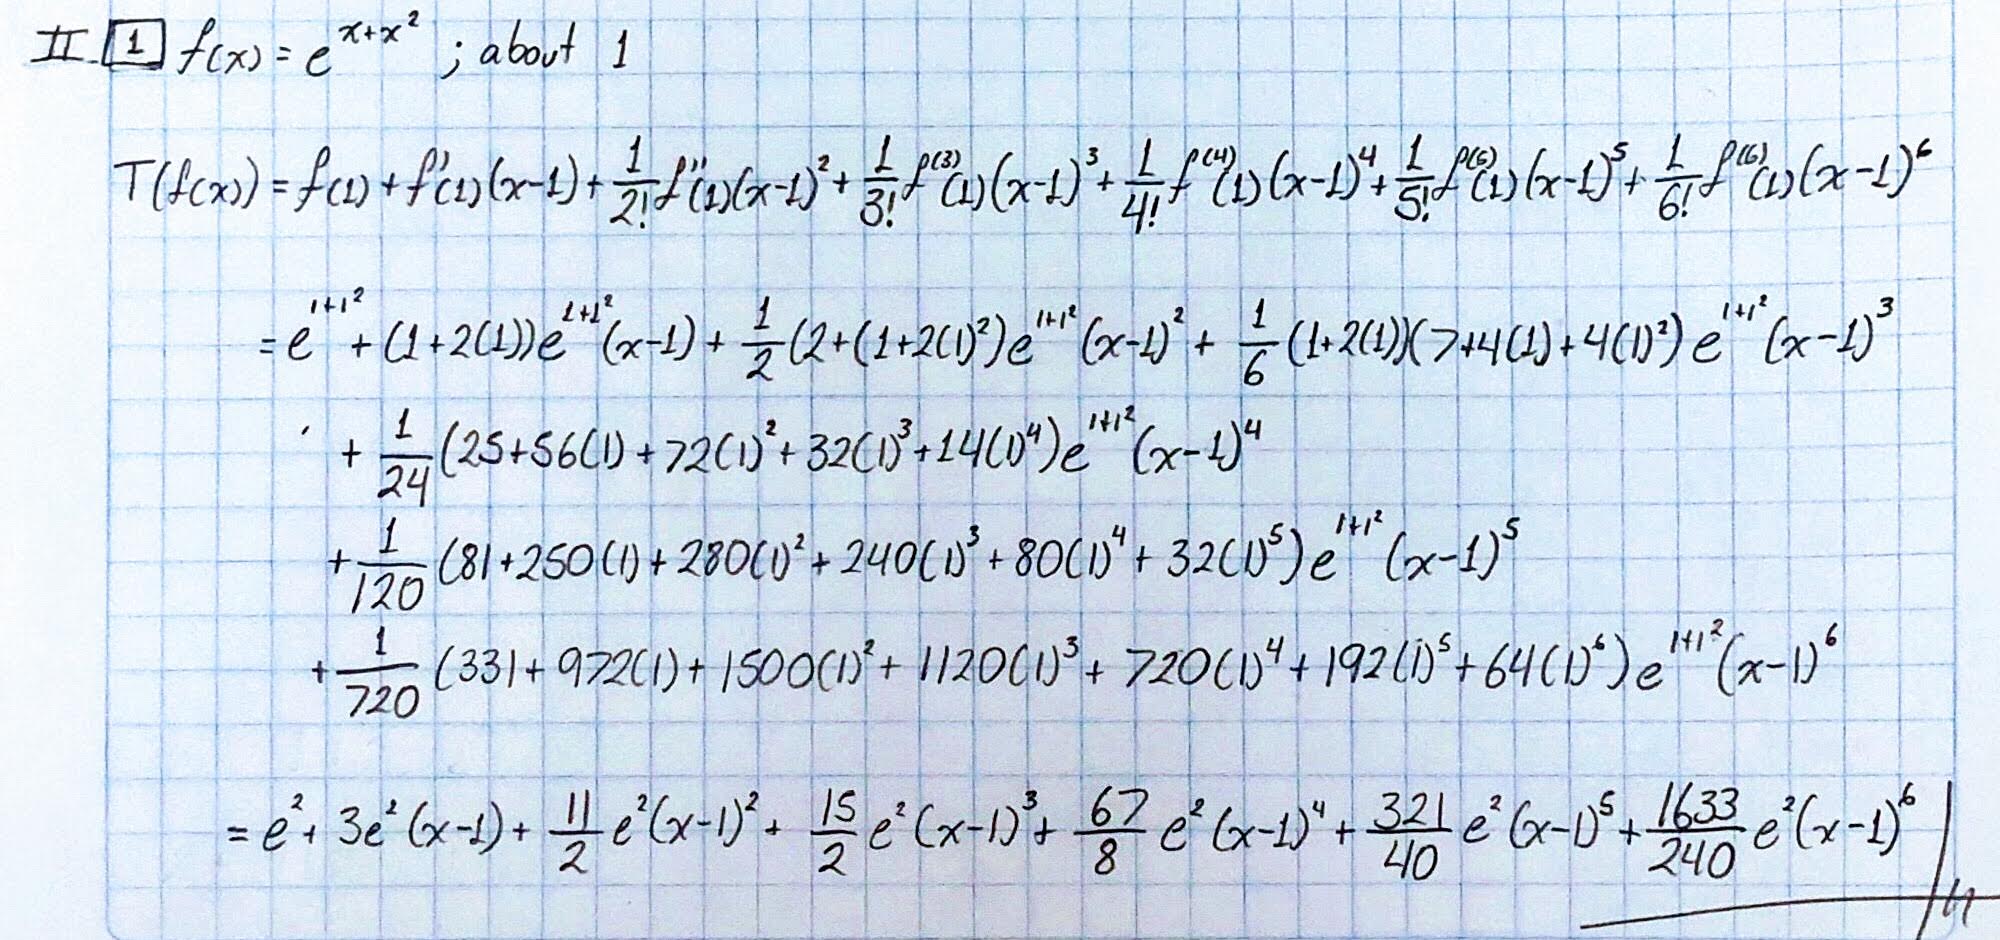 II. 1 f(x) = e^{x+x^2} ; about 1
T(f(x)) = f(1) + f'(1)(x-1) + \frac{1}{2!} f''(1)(x-1)^2 + \frac{1}{3!} f^{(3)}(1)(x-1)^3 + \frac{1}{4!} f^{(4)}(1)(x-1)^4 + \frac{1}{5!} f^{(5)}(1)(x-1)^5 + \frac{1}{6!} f^{(6)}(1)(x-1)^6
= e^{1+1^2} + (1+2(1))e^{1+1^2}(x-1) + \frac{1}{2}(2+(1+2(1)^2)e^{1+1^2}(x-1)^2 + \frac{1}{6}(1+2(1))(7+4(1)+4(1)^2)e^{1+1^2}(x-1)^3
+ \frac{1}{24}(25+56(1)+72(1)^2+32(1)^3+14(1)^4)e^{1+1^2}(x-1)^4
+ \frac{1}{120}(81+250(1)+280(1)^2+240(1)^3+80(1)^4+32(1)^5)e^{1+1^2}(x-1)^5
+ \frac{1}{720}(331+972(1)+1500(1)^2+1120(1)^3+720(1)^4+192(1)^5+64(1)^6)e^{1+1^2}(x-1)^6
= e^2 + 3e^2(x-1) + \frac{11}{2}e^2(x-1)^2 + \frac{15}{2}e^2(x-1)^3 + \frac{67}{8}e^2(x-1)^4 + \frac{321}{40}e^2(x-1)^5 + \frac{1633}{240}e^2(x-1)^6